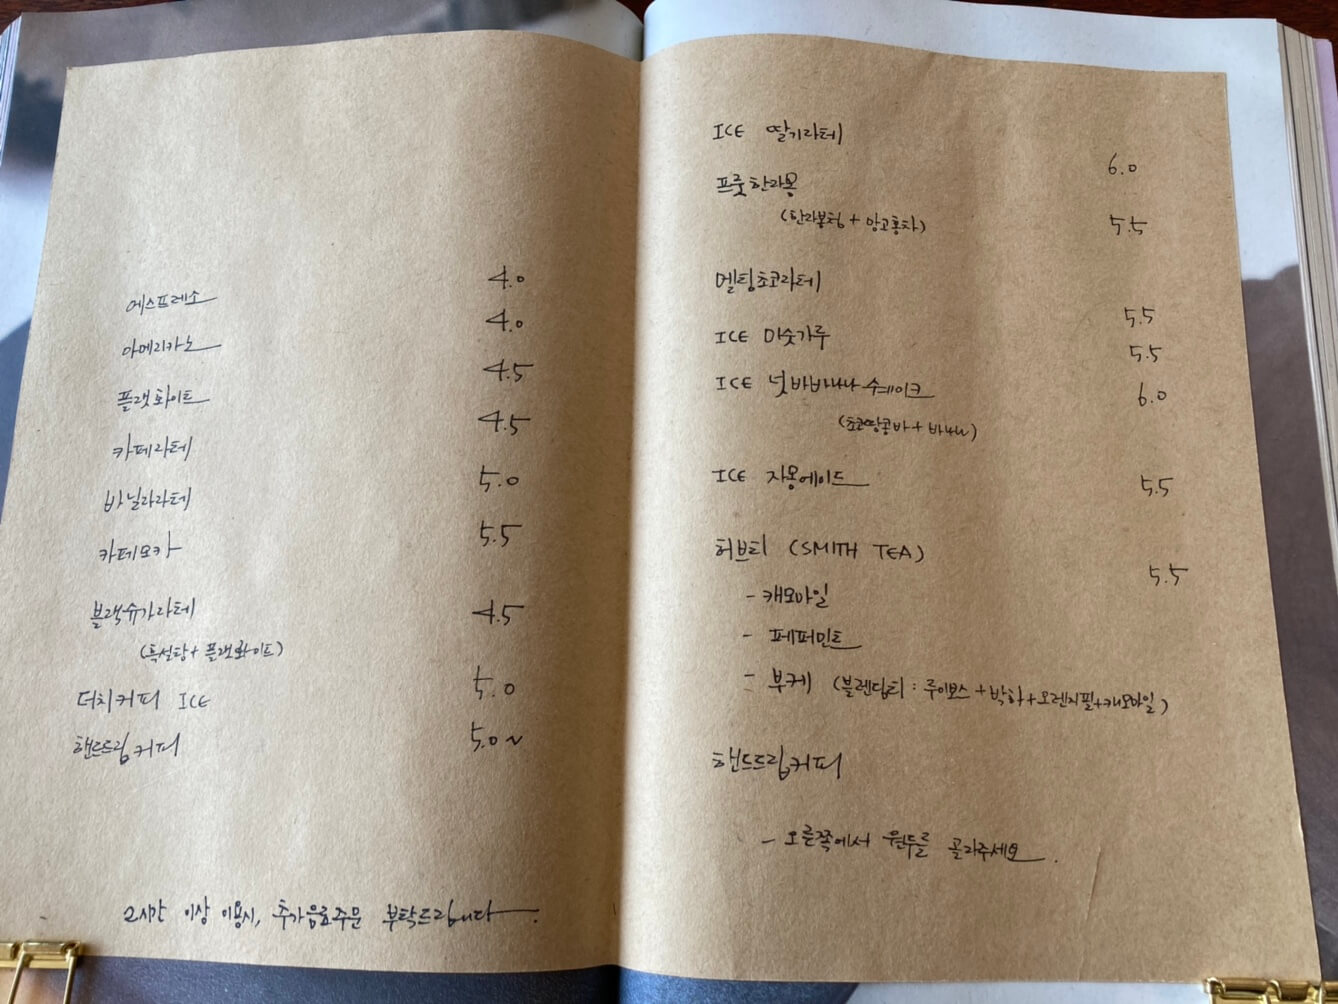 에스프레소 4.0
아메리카노 4.0
플랫화이트 4.5
카페라테 4.5
바닐라라테 5.0
카페모카 5.5
블랙슈가라테 4.5
(흑설탕+플랫화이트)
더치커피 ICE 5.0
핸드드립커피 5.0~
2시간 이상 이용시, 추가음료주문 부탁드립니다.
ICE 딸기라테 6.0
프룻한라몽 5.5
(한라봉청+망고홍차)
멜팅초코라테 5.5
ICE 미숫가루 5.5
ICE 넛바바나나쉐이크 6.0
(초코땅콩바+바나나)
ICE 자몽에이드 5.5
허브티 (SMITH TEA) 5.5
- 캐모마일
- 페퍼민트
- 부케 (블렌딩티: 루이보스+박하+오렌지필+캐모마일)
핸드드립커피
- 오른쪽에서 원두를 골라주세요.